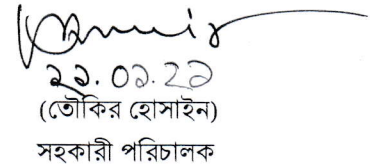 ২১.০১.২১
(তৌকির হোসাইন)
সহকারী পরিচালক